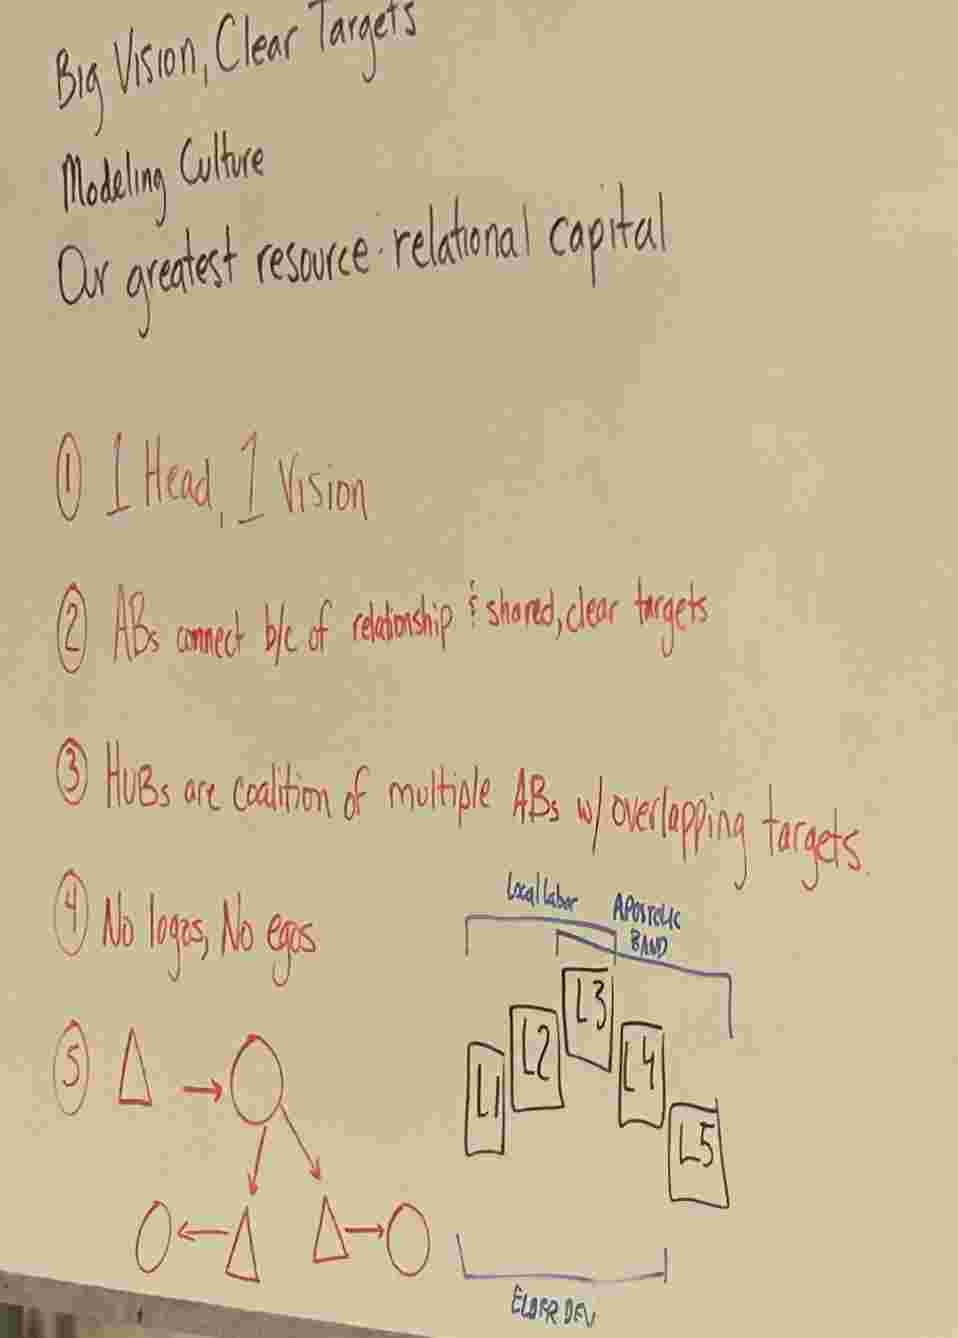 Big Vision, Clear Targets
Modeling Culture
Our greatest resource · relational capital
① 1 Head, 1 Vision
② ABs connect b/c of relationship & shared, clear targets
③ HUBs are coalition of multiple ABs w/ overlapping targets.
④ No logos, No egos
⑤
Local labor
APOSTOLIC
BAND
L1
L2
L3
L4
L5
ELDER DEV